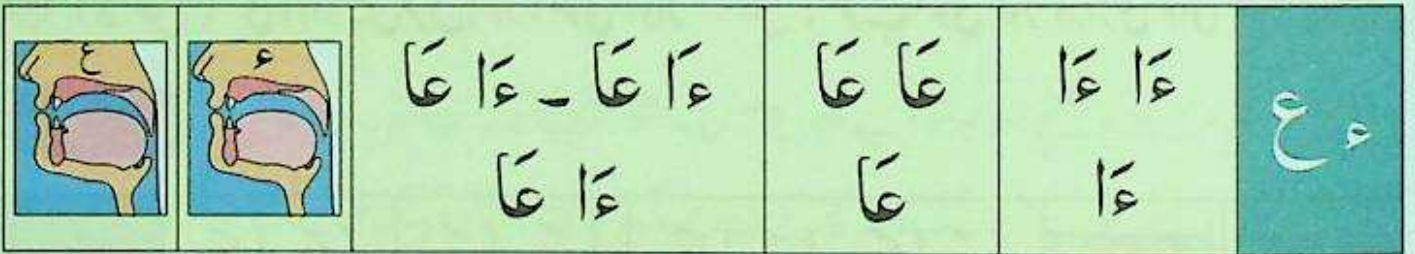 ء ع
ءَا ءَا
ءَا
عَا عَا
عَا
ءَا عَا - ءَا عَا
ءَا عَا
ء
ع